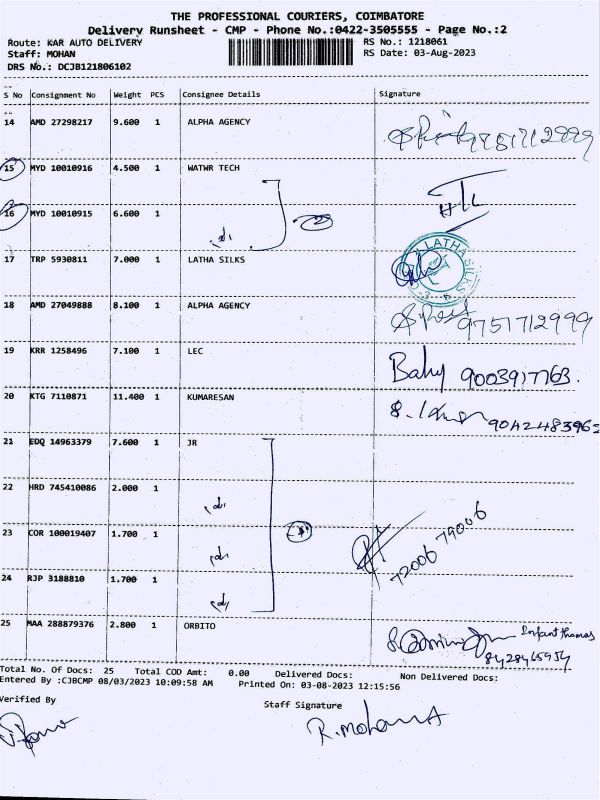 THE PROFESSIONAL COURIERS, COIMBATORE
Delivery Runsheet - CMP - Phone No.:0422-3505555 - Page No.:2
Route: KAR AUTO DELIVERY RS No.: 1218061
Staff: MOHAN RS Date: 03-Aug-2023
DRS No.: DCJB121806102
S No Consignment No Weight PCS Consignee Details Signature
14 AMD 27298217 9.600 1 ALPHA AGENCY 9751712999
15 MYD 10010916 4.500 1 WATWR TECH
16 MYD 10010915 6.600 1
17 TRP 5930811 7.000 1 LATHA SILKS LATHA SILKS
18 AMD 27049888 8.100 1 ALPHA AGENCY 9751712999
19 KRR 1258496 7.100 1 LEC Baby 9003917763.
20 KTG 7110871 11.400 1 KUMARESAN 9042483962
21 EDQ 14963379 7.600 1 JR
22 HRD 745410086 2.000 1
23 COR 100019407 1.700 1 72006 79006
24 RJP 3188810 1.700 1
25 MAA 288879376 2.800 1 ORBITO Infant thomas
8428465954
Total No. Of Docs: 25 Total COD Amt: 0.00 Delivered Docs: Non Delivered Docs:
Entered By :CJBCMP 08/03/2023 10:09:58 AM Printed On: 03-08-2023 12:15:56
Verified By Staff Signature
R. Mohan